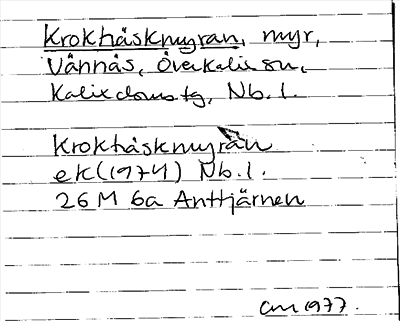 Krokhåskmyran, myr,
Vännäs, Överkalix sn,
Kalix domsfg, Nb. l.
Krokhåskmyran
ek (1974) Nb. l.
26 M 6a Anttjärnen
1977.